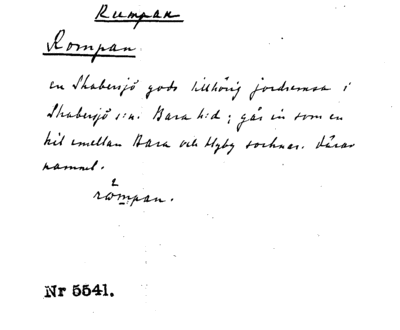 Rumpan
Rompan.
en Skabersjö gods tillhörig jordremsa i
Skabersjö s:n. Bara h:d; går in som en
kil emellan Bara och Hyby socknar. Därav
namnet.
råmpan.
Nr 5541.